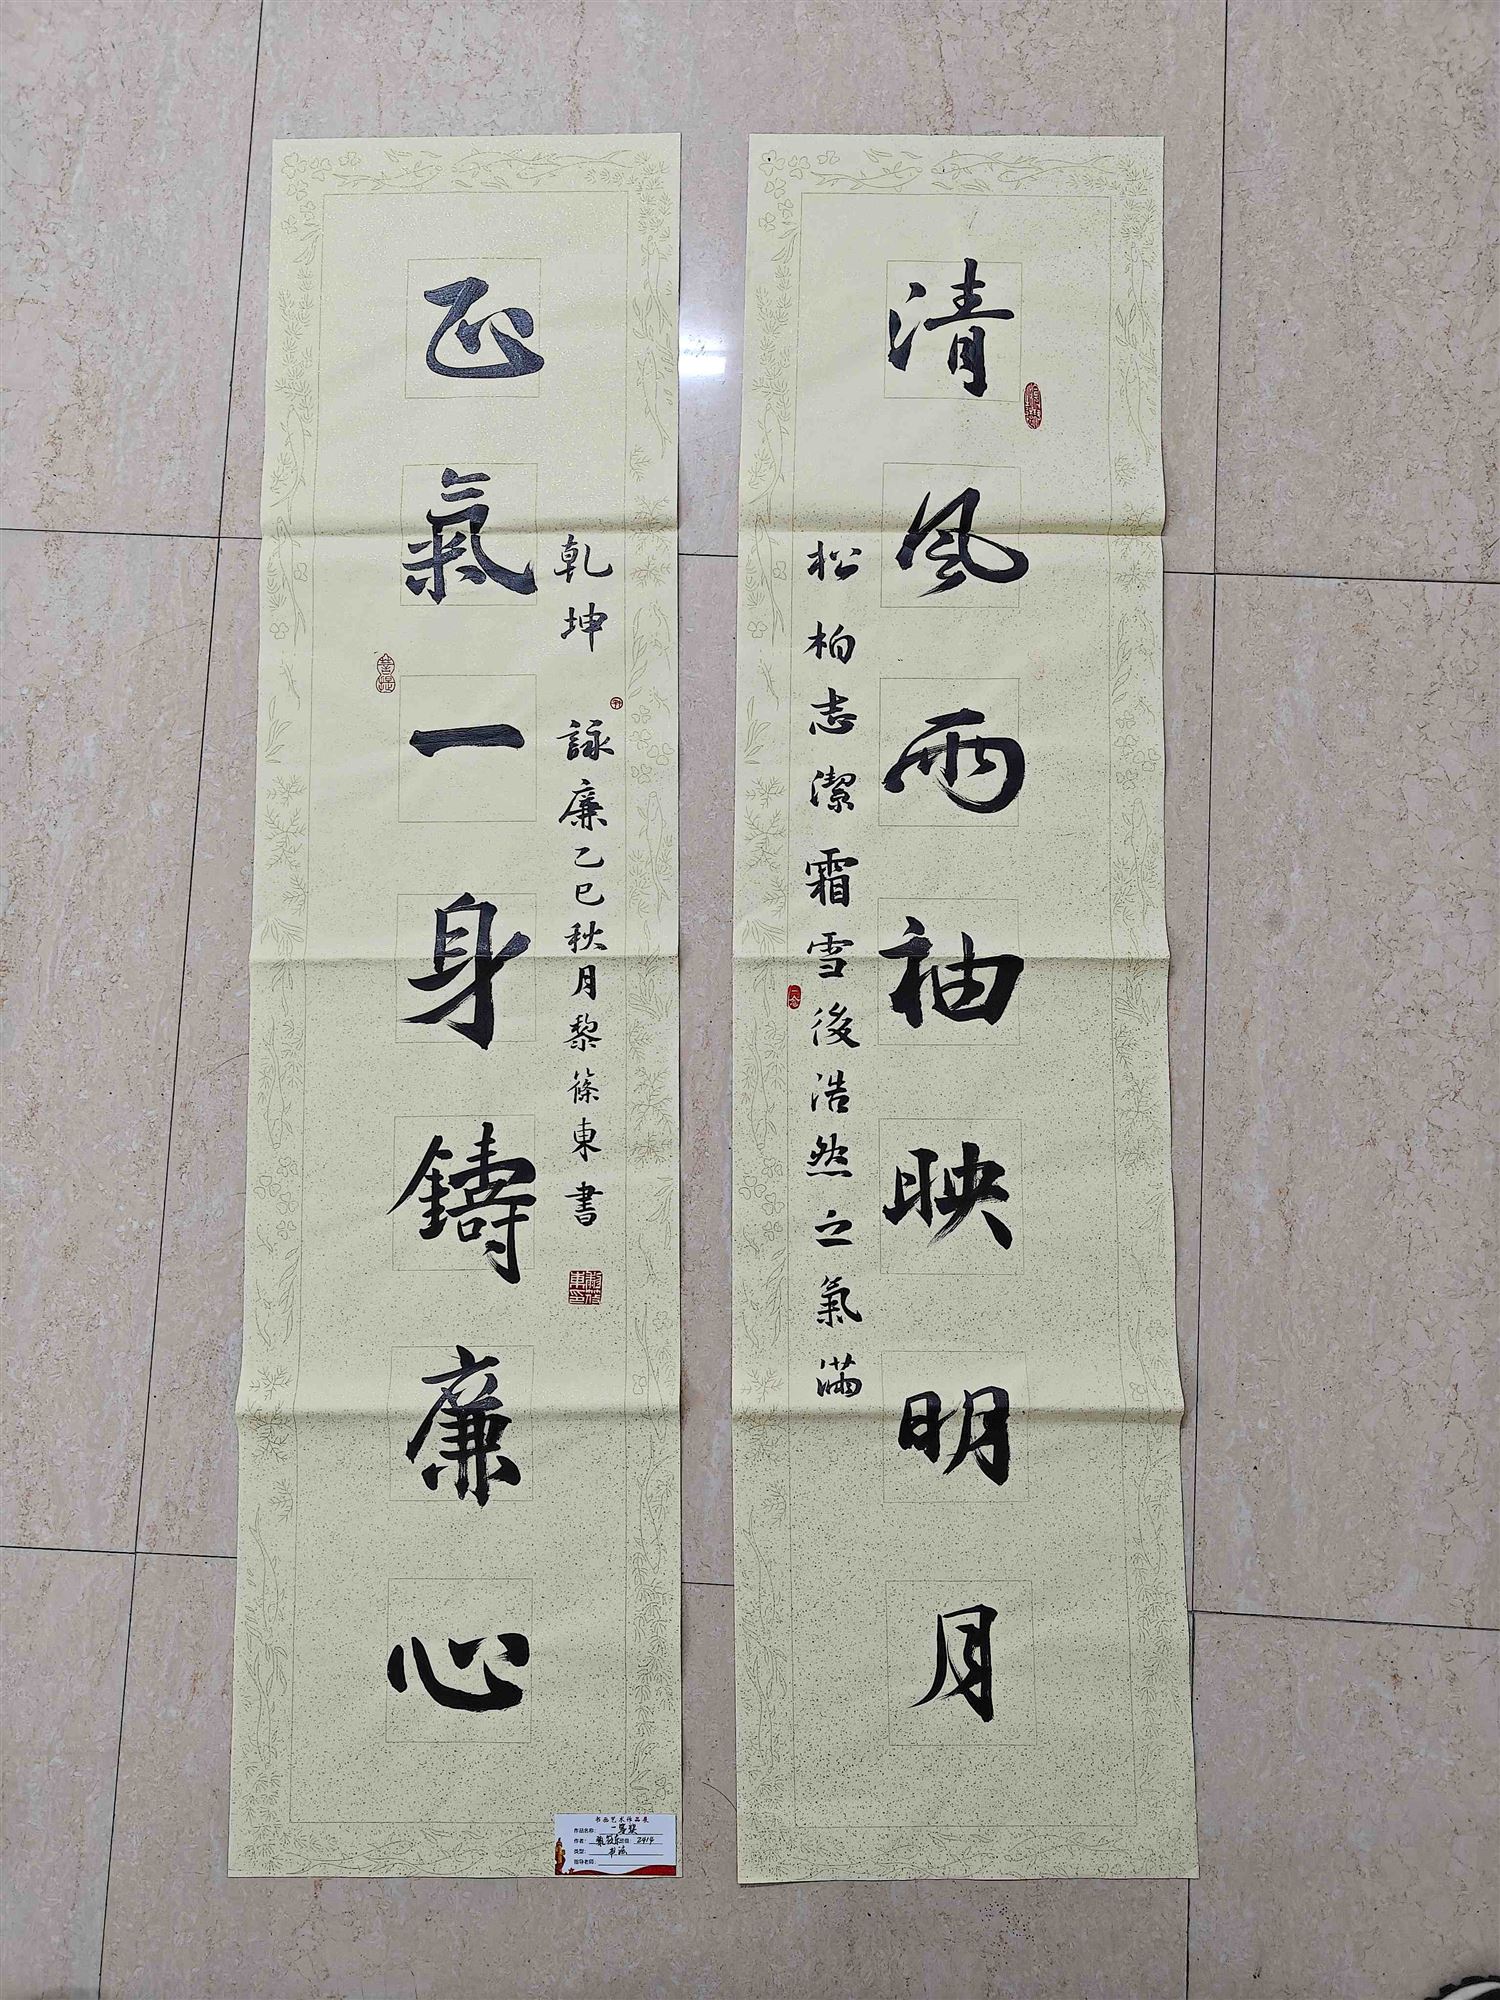 清風兩袖映明月
松柏志潔霜雪後浩然之氣滿
正氣一身鑄廉心
乾坤 詠廉乙巳秋月黎篠東書
书画艺术作品展
作品名称: 一等奖
作者: 班级: 2414
类型: 书法
指导老师: